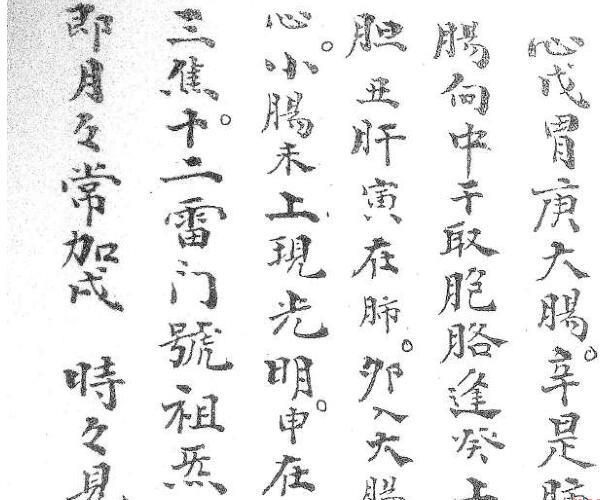 心戊胃庚大腸。辛是肺
腸向中干取胞胳逢癸
胆丑肝寅在肺。卯入大腸
心。小腸未上現光明。申在
三焦。十二雷门號祖炁
即月々常加戌 時々見